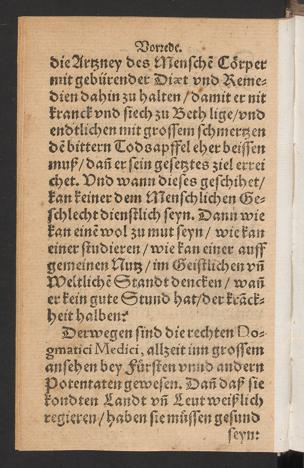 Vorrede.
die Artzney des Menschē Cörper
mit gebürender Diæt vnd Reme-
dien dahin zu halten / damit er nit
kranck vnd siech zu Beth lige / vnd
endtlichen mit grossem schmertzen
dē bittern Todsapffel eher beissen
muß / dañ er sein gesetztes ziel errei
chet. Vnd wann dieses geschihet /
kan keiner dem Menschlichen Ge-
schlecht dienstlich seyn. Dann wie
kan einē wol zu mut seyn / wie kan
einer studieren / wie kan einer auff
gemeinen Nutz / im Geistlichen vñ
Weltlichē Standt dencken / wañ
er kein gute Stund hat / der krāck-
heit halben?
Derwegen sind die rechten Do-
gmatici Medici, allzeit inn grossem
ansehen bey Fürsten vnnd andern
Potentaten gewesen. Dañ daß sie
kondten Landt vñ Leut weißlich
regieren / haben sie müssen gesund
seyn: